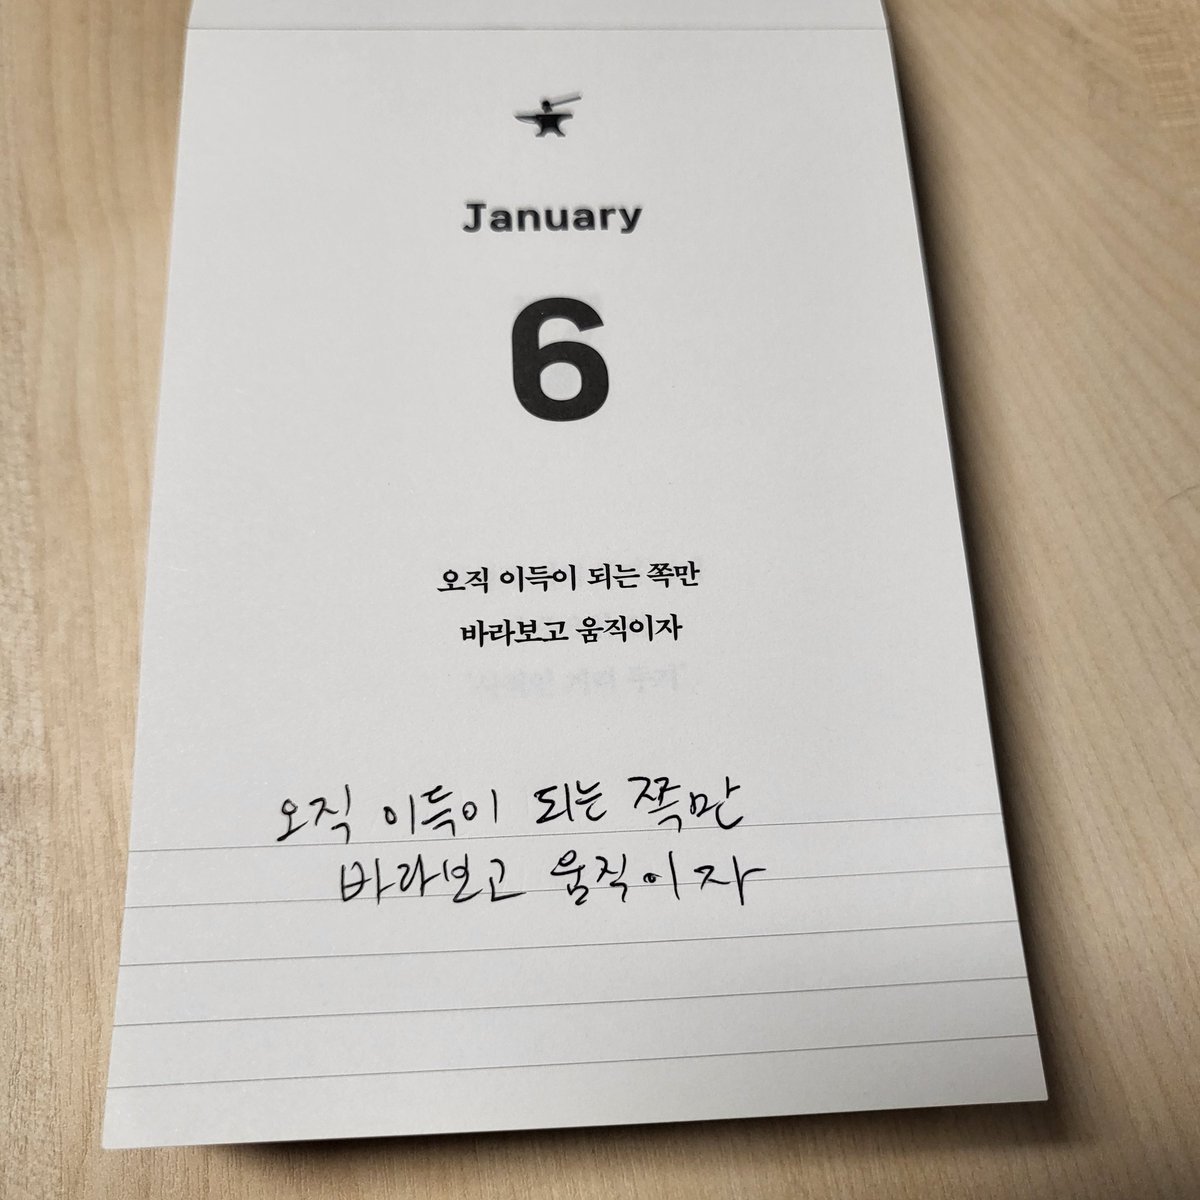 January
6
오직 이득이 되는 쪽만
바라보고 움직이자
오직 이득이 되는 쪽만
바라보고 움직이자